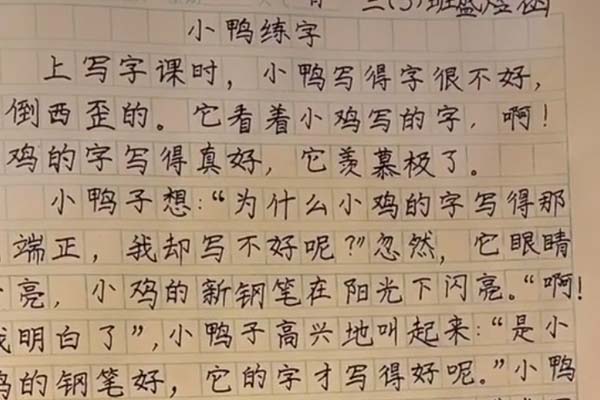 三(3)班盛煜涵
小鸭练字
上写字课时，小鸭写得字很不好，
倒西歪的。它看着小鸡写的字，啊！
鸡的字写得真好，它羡慕极了。
小鸭子想：“为什么小鸡的字写得那
端正，我却写不好呢？”忽然，它眼睛
亮，小鸡的新钢笔在阳光下闪亮。“啊！
我明白了”，小鸭子高兴地叫起来：“是小
鸡的钢笔好，它的字才写得好呢。”小鸭